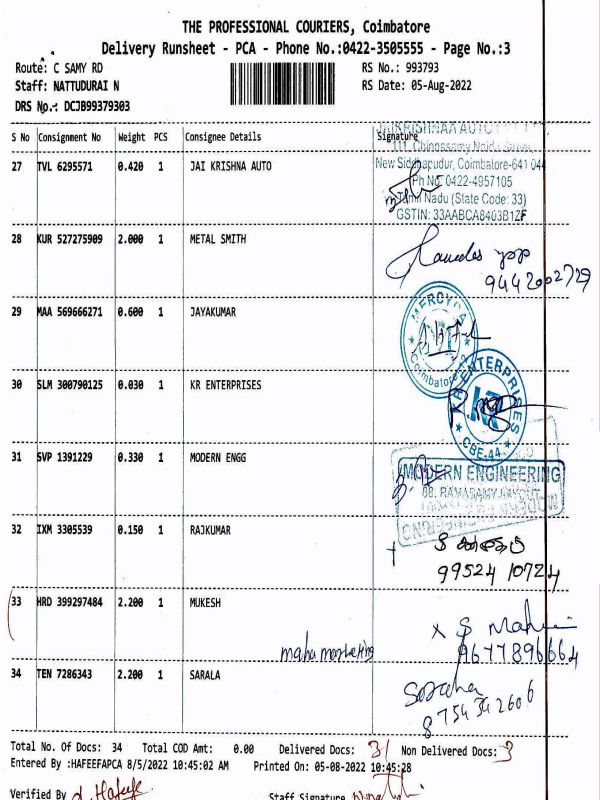 THE PROFESSIONAL COURIERS, Coimbatore
Delivery Runsheet - PCA - Phone No.:0422-3505555 - Page No.:3
Route: C SAMY RD RS No.: 993793
Staff: NATTUDURAI N RS Date: 05-Aug-2022
DRS No.: DCJB99379303
S No Consignment No Weight PCS Consignee Details Signature
JAIKRISHNAA AUTO
111, Chinnasamy Naidu Street,
27 TVL 6295571 0.420 1 JAI KRISHNA AUTO New Siddhapudur, Coimbatore-641 044
Ph No: 0422-4957105
Tamil Nadu (State Code: 33)
GSTIN: 33AABCA8403B1ZF
28 KUR 527275909 2.000 1 METAL SMITH
9442002729
29 MAA 569666271 0.600 1 JAYAKUMAR
Coimbatore
30 SLM 300790125 0.030 1 KR ENTERPRISES
KR ENTERPRISES
KR
CBE-44
31 SVP 1391229 0.330 1 MODERN ENGG
MODERN ENGINEERING
68, RAMASAMY
32 IXM 3305539 0.150 1 RAJKUMAR
99524 10724
33 HRD 399297484 2.200 1 MUKESH
maha marketing
9677896664
34 TEN 7286343 2.200 1 SARALA
Sarala
8754342606
Total No. Of Docs: 34 Total COD Amt: 0.00 Delivered Docs: 31 Non Delivered Docs: 3
Entered By :HAFEEFAPCA 8/5/2022 10:45:02 AM Printed On: 05-08-2022 10:45:28
Verified By Staff Signature